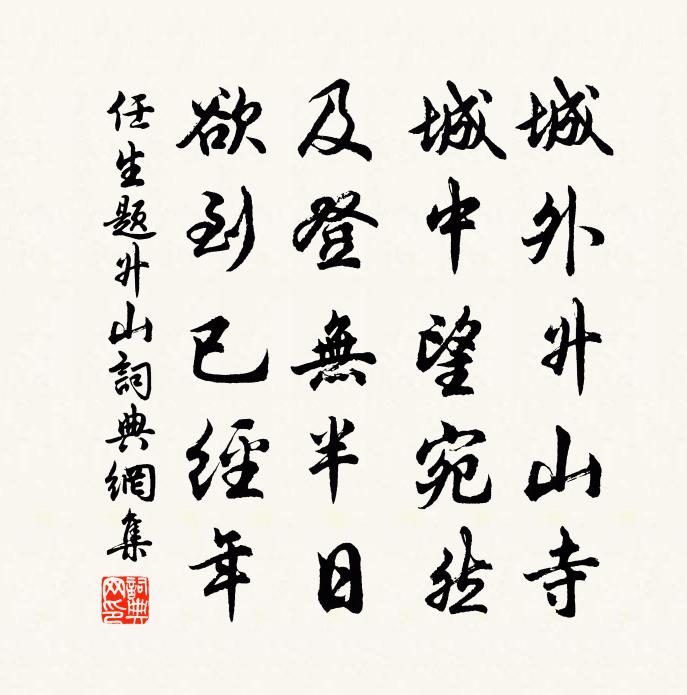 城外升山寺
城中望宛然
及登無半日
欲到已經年
任生題升山詞典網集
詞典網印